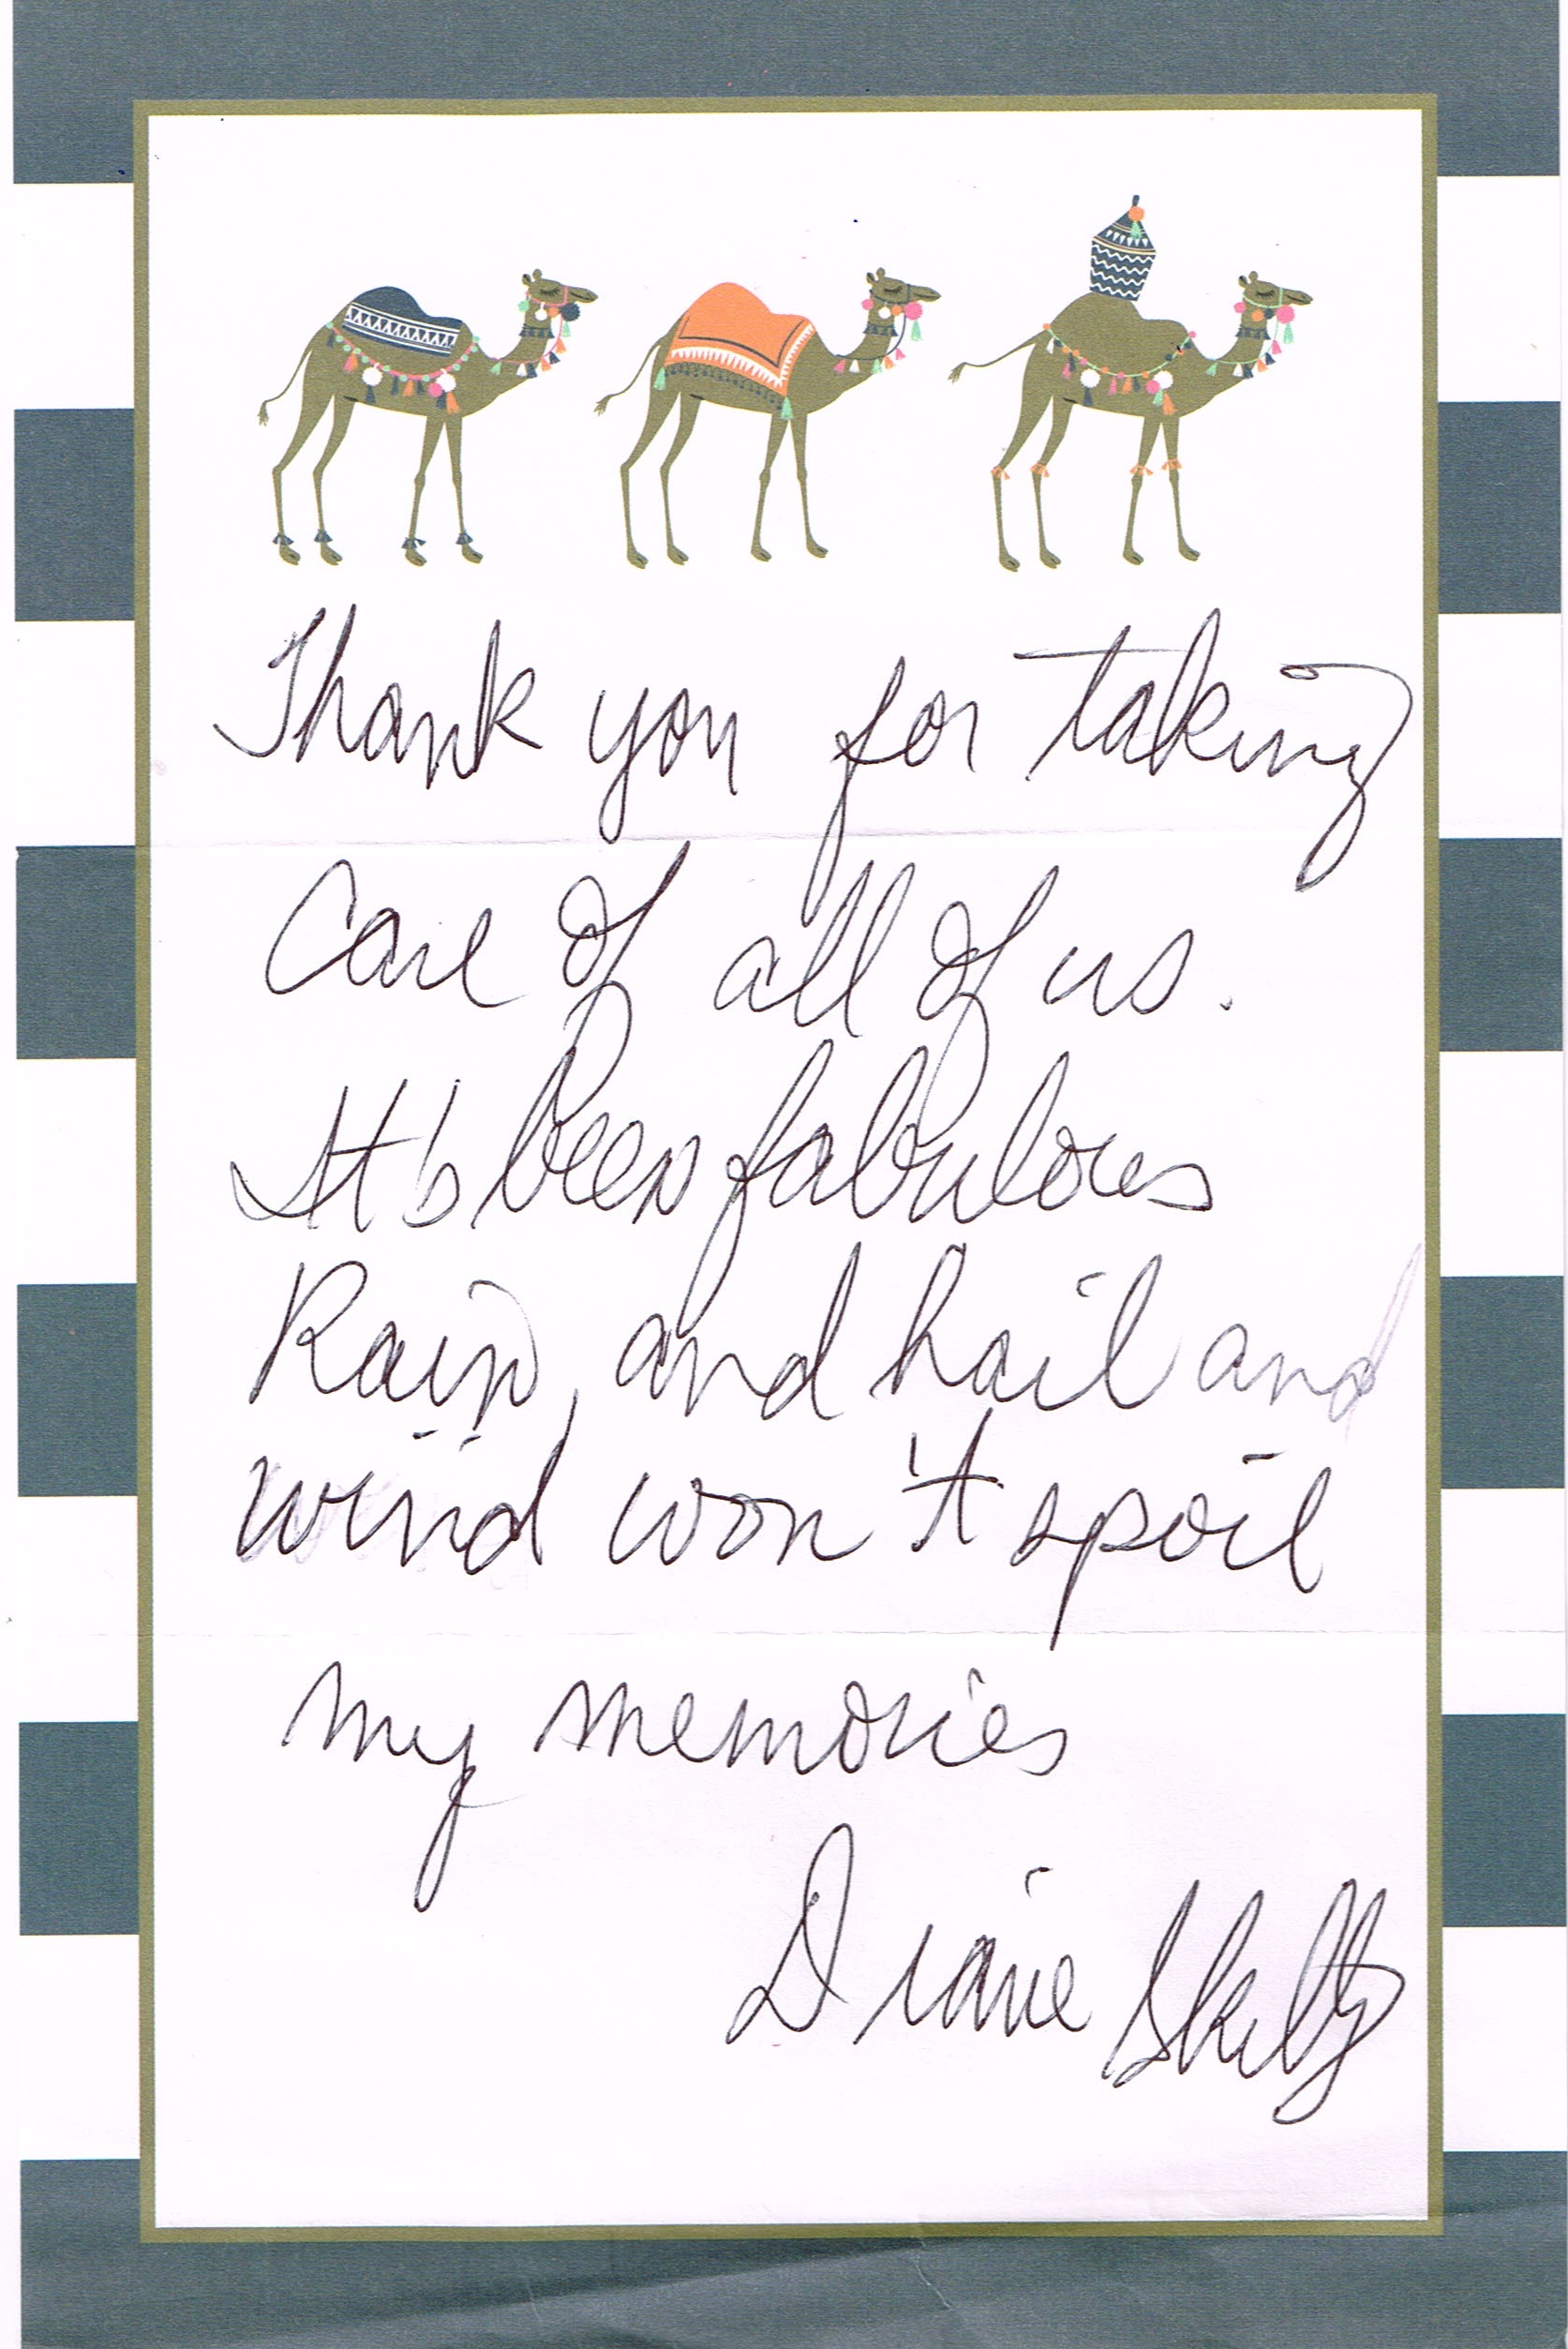 Thank you for taking
Care of all of us.
It's been fabulous
Rain, and hail and
wind won't spoil
my memories
Diane